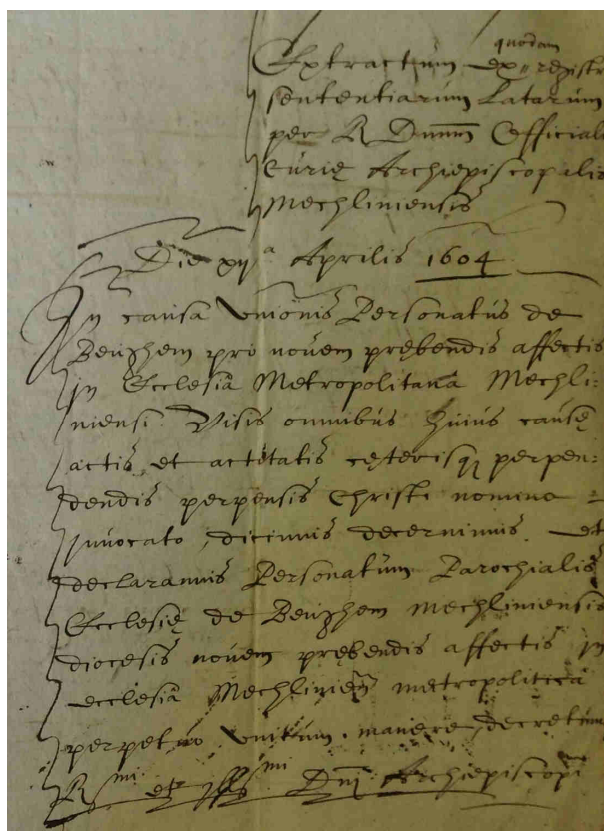 quodam
Extractum ex registr
sententiarum Latarum
per R Dnum Official
Curię Archiepiscopalis
Mechliniensis
Die xijᵃ Aprilis 1604
In causa Unionis Personatus de
pro novem prębendis affectis
in Ecclesia Metropolitana Mechli:
niensi Visis omnibus huius causę
actis et actitatis cęterisq perpen:
dendis perpensis Christi nomine
invocato, dicimus decernimus et
declaramus Personatum Parochialis
Ecclesię de Mechliniensis
diocesis novem prębendis affectis in
ecclesia Mechlinien metropolitica
perpetuo unitum manere, decretum
Rmi et Illmi Dni Archiepiscopi